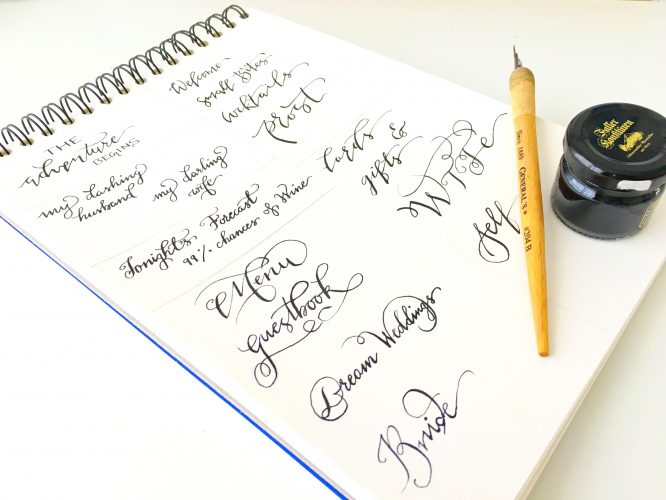 THE
adventure
BEGINS
Welcome
Small Bites
Cocktails
Prost
my dashing
husband
my darling
wife
cards &
gifts
WIFE
Tonights Forecast
99% chances of Wine
Menu
Guestbook
Self
Dream Weddings
Bride
Since 1889 GENERAL'S